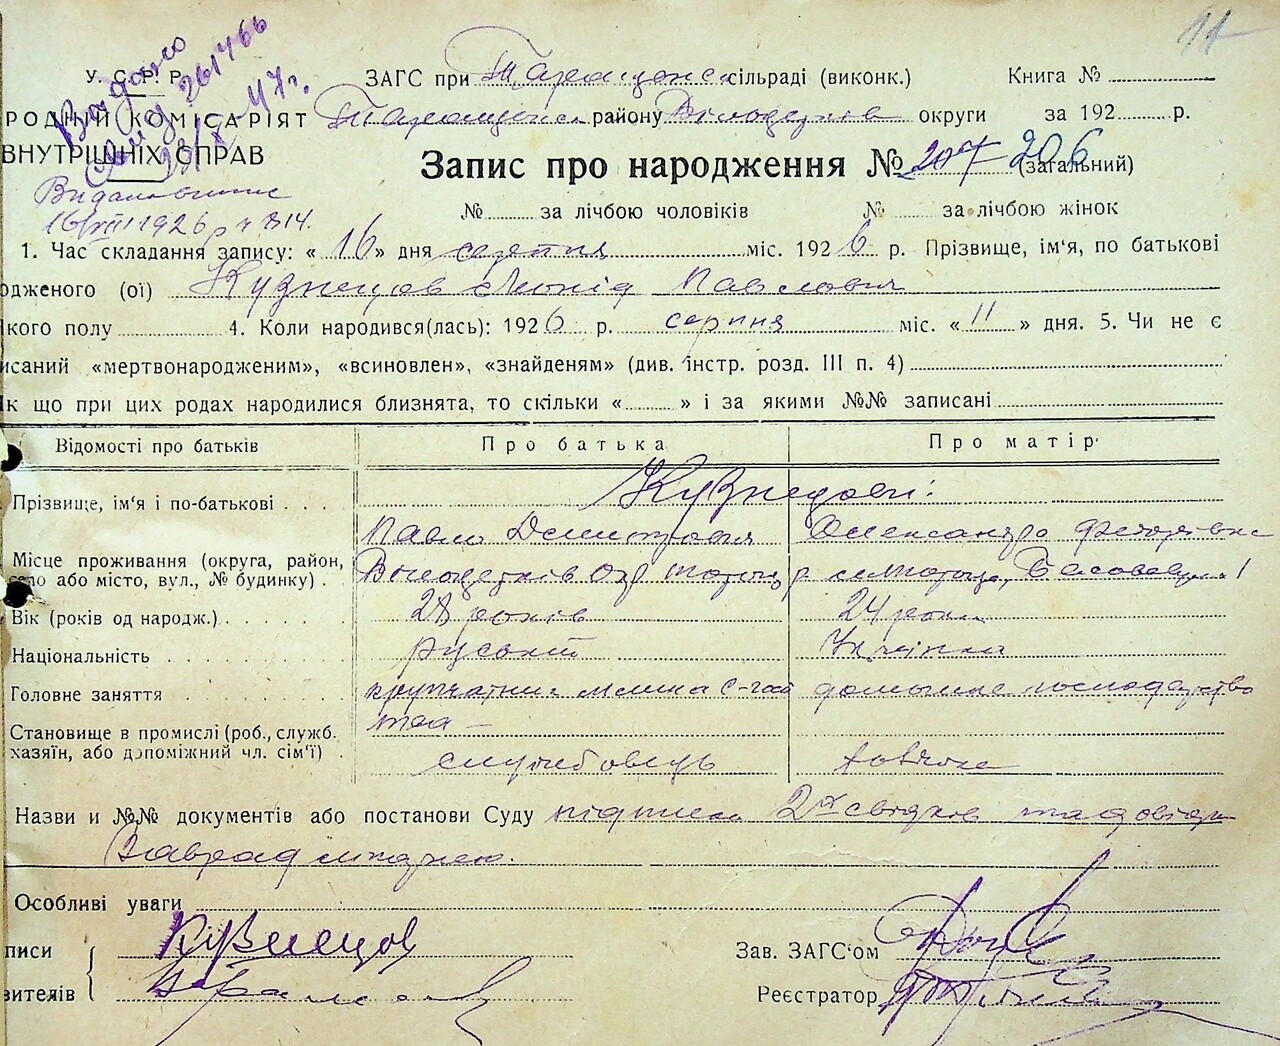 11
У. С. Р. Р. ЗАГС при Таращанс сільраді (виконк.) Книга №
Видано
РОДНИЙ КОМІСАРІЯТ Таращанс району Білоцерків округи за 192 р.
ВНУТРІШНІХ СПРАВ
Запис про народження № 207 206 (загальний)
16/VIII 1926 р № 814.
№ за лічбою чоловіків № за лічбою жінок
1. Час складання запису: « 16 » дня серпня міс. 1926 р. Прізвище, ім'я, по батькові
одженого (ої) Кузнецов Леонід Павлович
кого полу 4. Коли народився(лась): 1926 р. серпня міс. « 11 » дня. 5. Чи не є
исаний «мертвонародженим», «всиновлен», «знайденям» (див. інстр. розд. III п. 4)
к що при цих родах народилися близнята, то скільки « » і за якими №№ записані
Відомості про батьків Про батька Про матір
Кузнецови:
Прізвище, ім'я і по-батькові
Павло Дмитрович Олександра Федорівна
Місце проживання (округа, район,
село або місто, вул., № будинку)
Вік (років од народж.) 28 років 24 роки
Національність руський Українка
Головне заняття млина домашнє господарство
Становище в промислі (роб., служб.
хазяїн, або допоміжний чл. сім'ї)
службовець
Назви и №№ документів або постанови Суду підписи 2х свідків та довідка
Особливі уваги
писи Кузнецов Зав. ЗАГС'ом
вителів Реєстратор